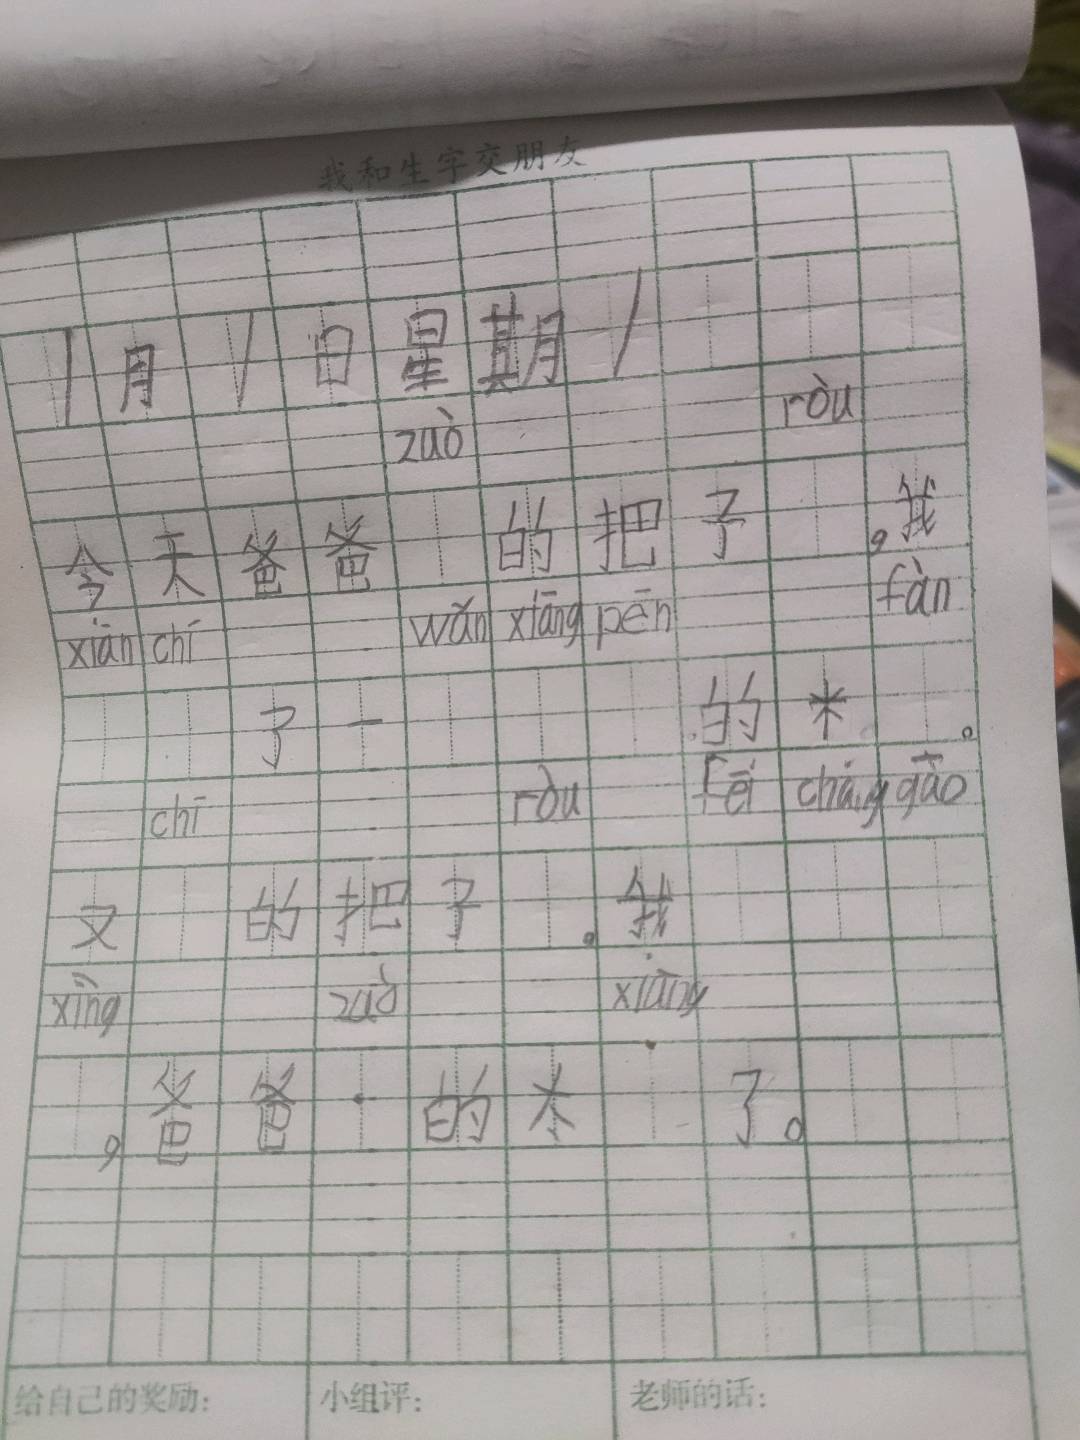 我和生字交朋友
1月1日星期1
zuò ròu
今天爸爸 的把子 ,我
xiān chī wǎn xiāng pēn fàn
了一 的米 。
chī ròu fēi cháng gāo
又 的把子 。我
xìng zuò xiāng
,爸爸 的太 了。
给自己的奖励: 小组评: 老师的话: